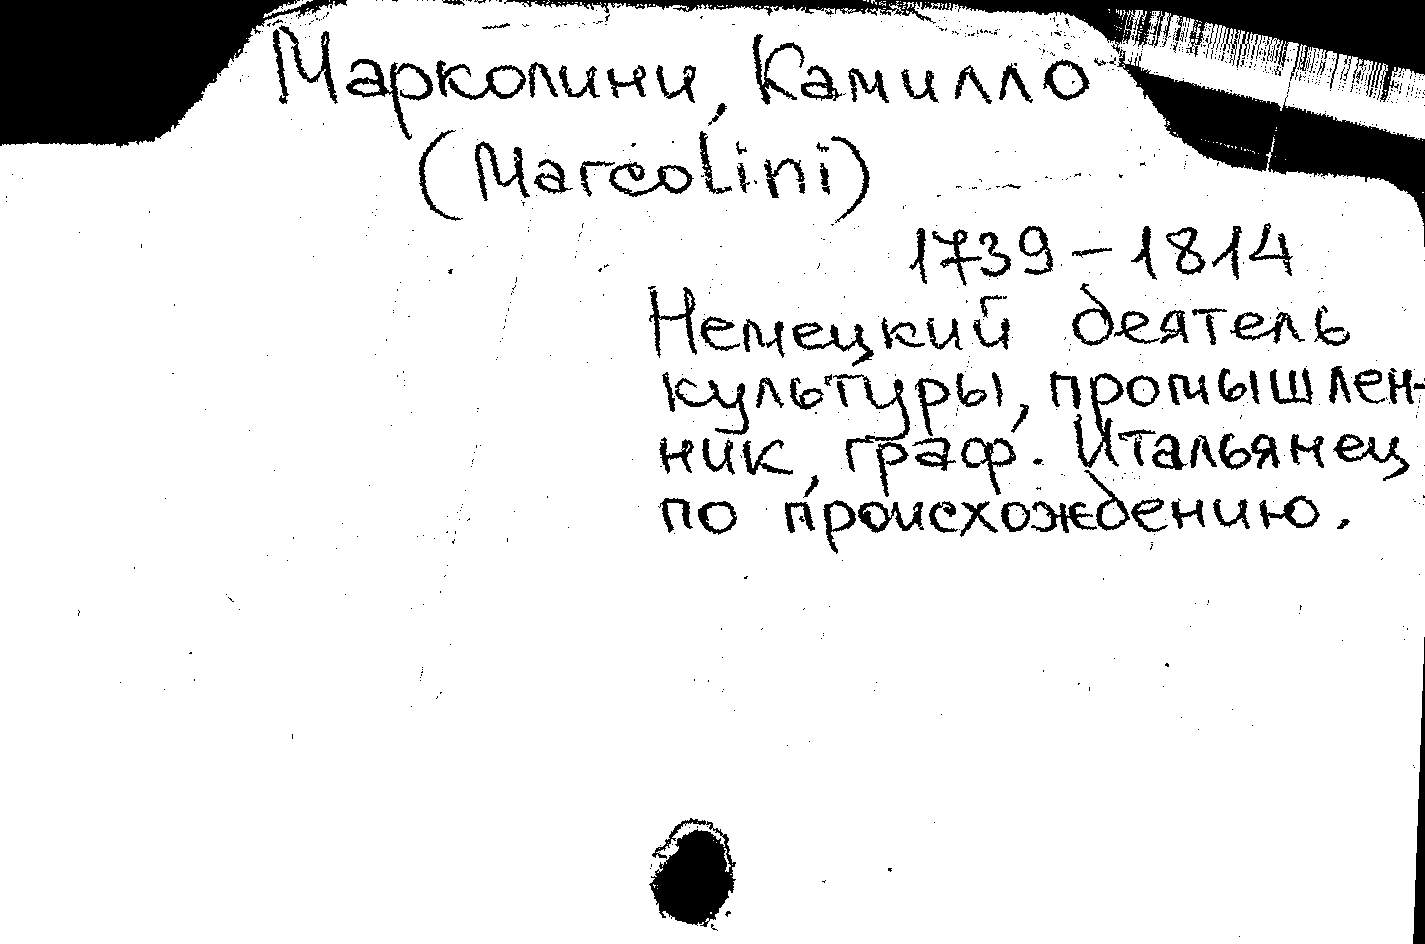 Марколини, Камилло
(Marcolini)
1739 – 1814
Немецкий деятель
культуры, промышлен-
ник, граф. Итальянец
по происхождению.